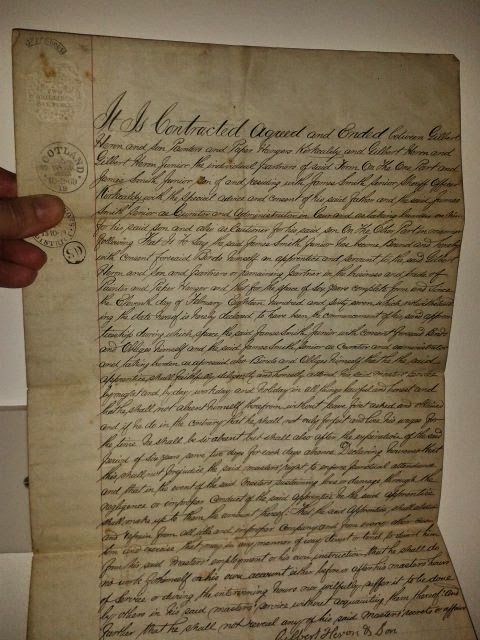 SCOTLAND
It Is Contracted Agreed and Ended between Gilbert
Heron and Son Painters and Paper Hangers Kirkcaldy and Gilbert Heron and
Gilbert Heron Junior the individual partners of said Firm On The One Part and
James Smith Junior Son of and residing with James Smith Senior Sheriff Officer
Kirkcaldy with the special advice and consent of his said father and the said James
Smith Senior as Curator and Administrator in Law and as taking burden on him
for his said son and also as Cautioner for his said son On The Other Part in manner
following That Is To Say the said James Smith Junior has become Bound and hereby
with consent foresaid Binds himself as apprentice and servant to the said Gilbert
Heron and Son and partners or remaining partner in the business and trade of
Painter and Paper Hanger and that for the space of six years complete from and since
the Eleventh day of February Eighteen hundred and sixty seven which notwithstand
ing the date hereof is hereby declared to have been the commencement of his said appren
ticeship during which space the said James Smith Junior with consent foresaid Binds
and Obliges himself and the said James Smith Senior as Curator and administrator
and taking burden as aforesaid also Binds and Obliges himself that he the said
apprentice, shall faithfully diligently and honestly attend his said masters service
by night and by day, workday and holiday in all things lawful and honest and
that he shall not absent himself therefrom without leave first asked and obtained
and if he do in the contrary that he shall not only forfeit and lose his wages for
the time he shall be so absent but shall also after the expiration of the said
period of six years serve two days for each days absence Declaring however that
this shall not prejudice the said masters right to enforce punctual attendance
and that in the event of the said masters sustaining loss or damage through the
negligence or improper conduct of the said apprentice he the said apprentice
shall make up to them the amount thereof: That the said Apprentice, shall abstain
and refrain from all idle and improper company and from every other
and exercise that may in any manner of way divert or tend to divert him
from his said masters employment or his own instruction that he shall do
no work for himself or his own account either before or after his masters hours
of service or during the intervening hours nor wilfully suffer it to be done
by others in his said masters service without acquainting them thereof: and
further that he shall not reveal any of his said masters secrets or affairs
Gilbert Heron & Son